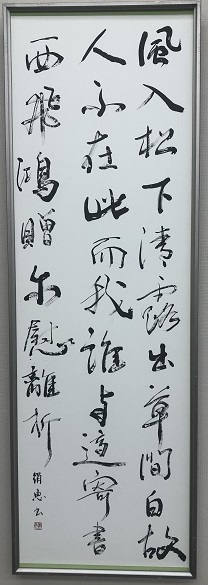 風入松下清露出草間白故
人不在此而我誰与適寄書
西飛鴻贈尓慰離析
絹恵書